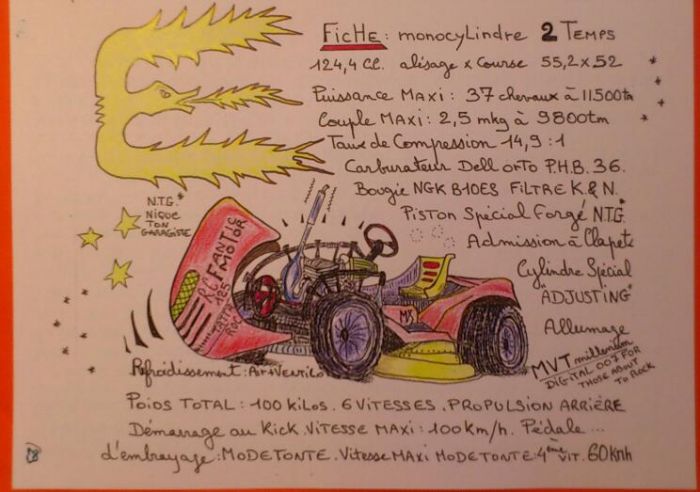 FicHe : monocyLindre 2 Temps
124,4 C.C. alisage x Course 55,2 x 52
Puissance MAXi : 37 chevaux à 11500 tm
Couple MAXi : 2,5 mkg à 9800 tm
Taux de Compression 14,9 : 1
Carburateur Dell orto P.H.B. 36.
Bougie NGK B10ES FiLTRE K & N.
Piston Spécial Forgé N.T.G.*
Admission à Clapets
Cylindre Spécial
"ADJUSTING"
Allumage
MVT millenium
DiGiTAL 007 FOR
THOSE ABOUT
To Rock
N.T.G.*
NiQUE
TON
GARAGiSTE
FANTIC
MOTOR
125
MX
Refroidissement : Air + VentiLo
Poids TOTAL : 100 kiLos . 6 ViTESSES . PROPULSiON ARRiÈRE
Démarrage au Kick . ViTESSE MAXi : 100 km/h . Pédale ...
d'embrayage : MODE TONTE . Vitesse MAXi MODE TONTE : 4ème ViT. 60 kmh